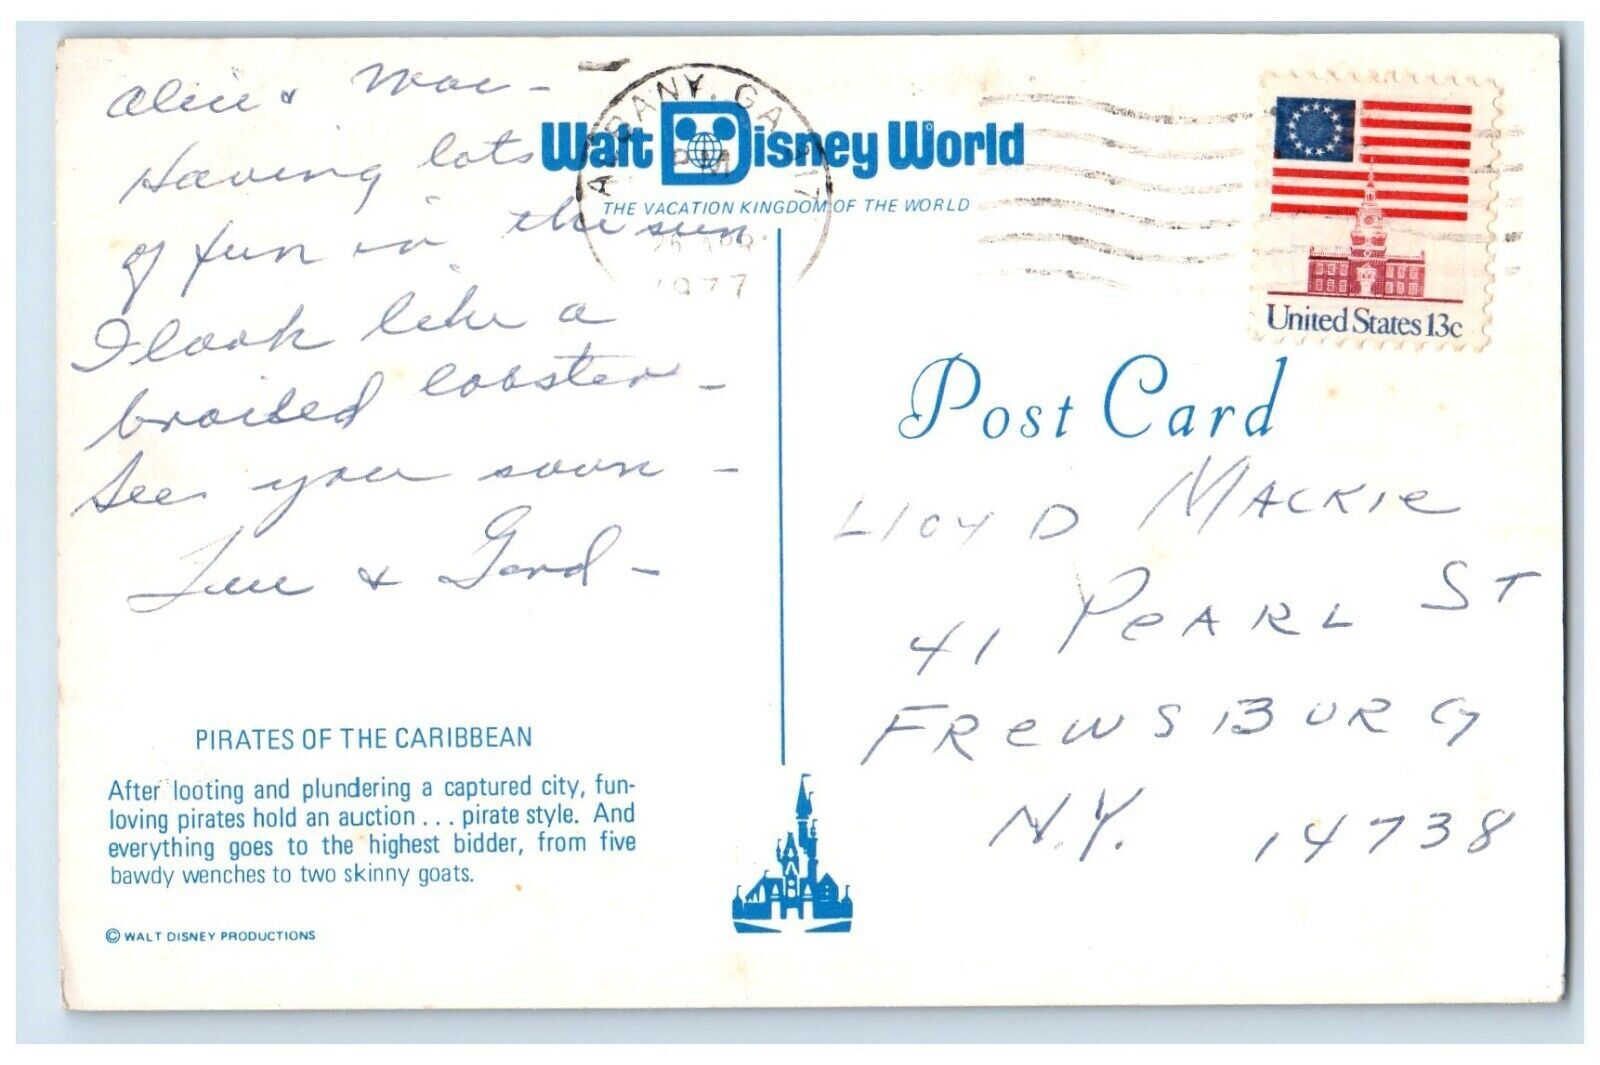 Alice & Mac -
Having lots
of fun in the sun.
I look like a
broiled lobster -
See you soon -
& Gord -
PIRATES OF THE CARIBBEAN
After looting and plundering a captured city, fun-
loving pirates hold an auction . . . pirate style. And
everything goes to the highest bidder, from five
bawdy wenches to two skinny goats.
© WALT DISNEY PRODUCTIONS
Walt Disney World
THE VACATION KINGDOM OF THE WORLD
ALBANY, GA 317
PM
25 APR
1977
United States 13c
Post Card
LLOYD MACKIE
41 PEARL ST
FREWSBURG
N.Y. 14738